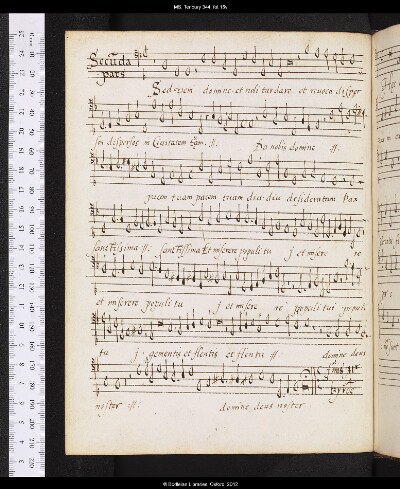 MS. Tenbury 344, fol. 15v
Secūda
pars
Sed veni domine et noli tardare et revoca disper
sos dispersos in Civitatem tuam :||: Da nobis domine :||:
pacem tuam pacem tuam diu diu desideratam Pax
sanctissima :||: sanctissima Et miserere populi tu j et misere re
et miserere populi tu j et misere re populi tui populi
tu j gementis et flentis et flentis :||: domine deus
noster :||: domine deus noster
finis
© Bodleian Libraries, Oxford, 2012